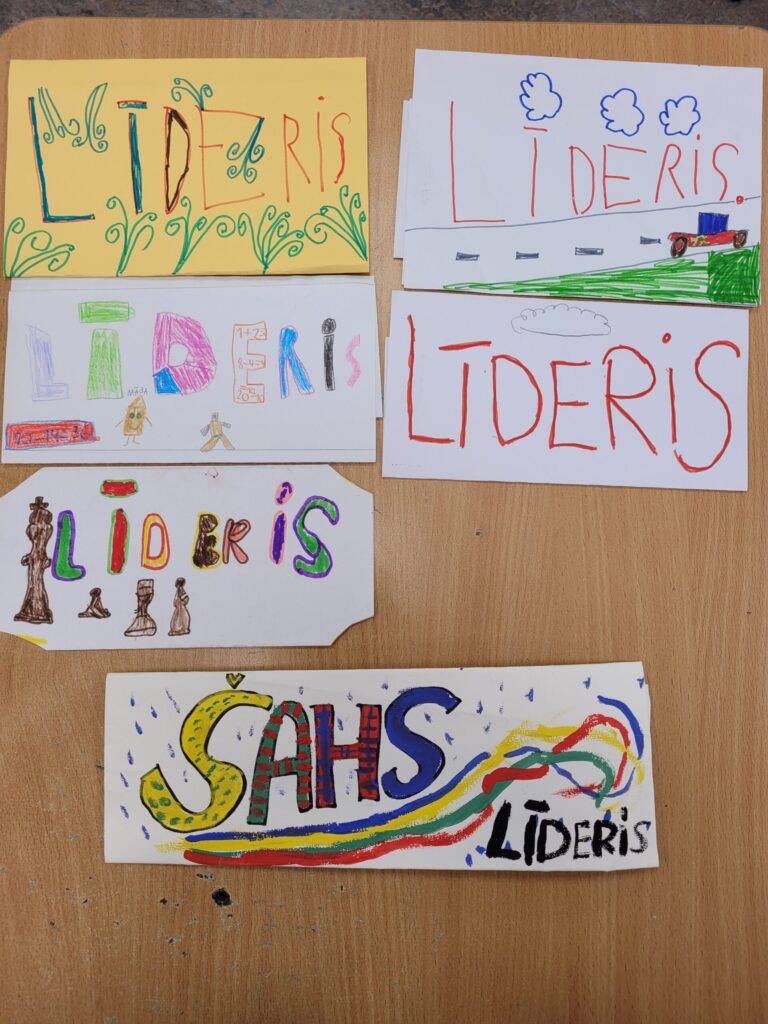 LĪDERIS
LĪDERIS.
LĪDERIS
1+2=
8-4=
MĀJA
LĪDERIS
LĪDERIS
ŠAHS
LĪDERIS